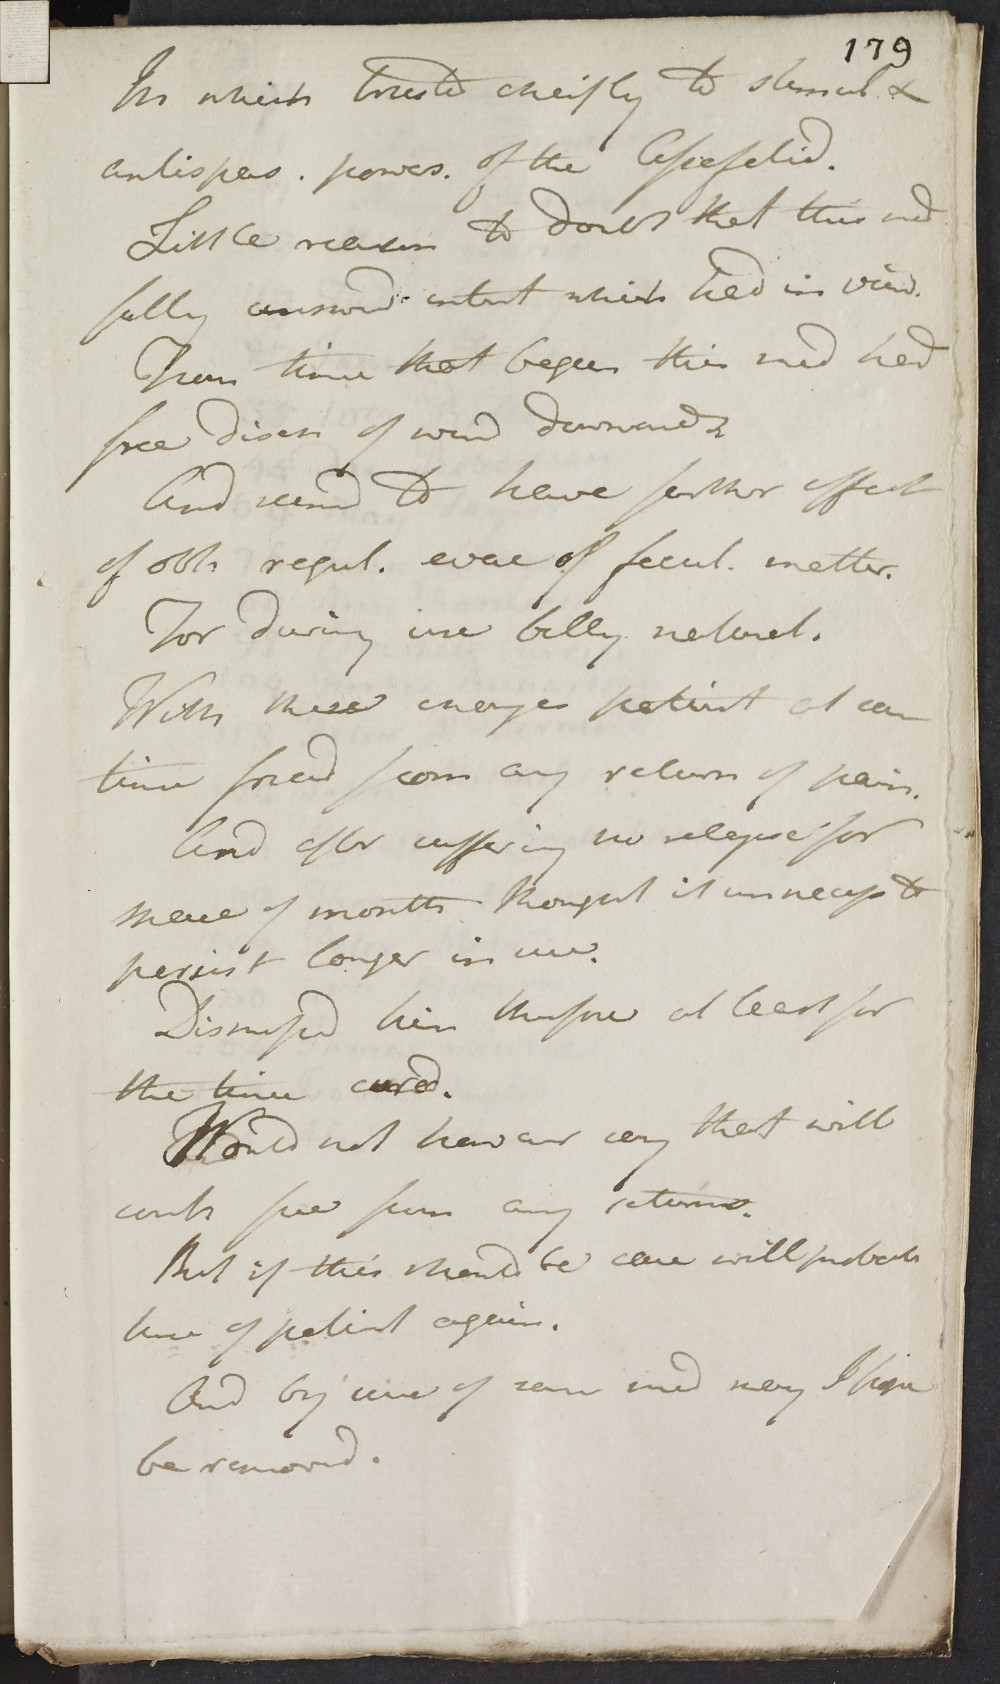 179
In which trusted cheifly to stimul. &
antispas. powers. of the Assafetid.
Little reason to doubt that this med
fully answerd intent which had in view.
From time that began this med had
free disch of wind downwards
And seemd to have further effect
of obt regul. evac of fecul. matter.
For during use belly natural.
With these changes patient at same
time freed from any return of pain.
And after suffering no relapse for
space of month thought it unnecess to
persist longer in use.
Dismissd him therefore at least for
the time cured.
Would not however say that will
contin free from any returns.
But if this should be case will probab
hear of patient again.
And by use of same med may I hope
be removed.